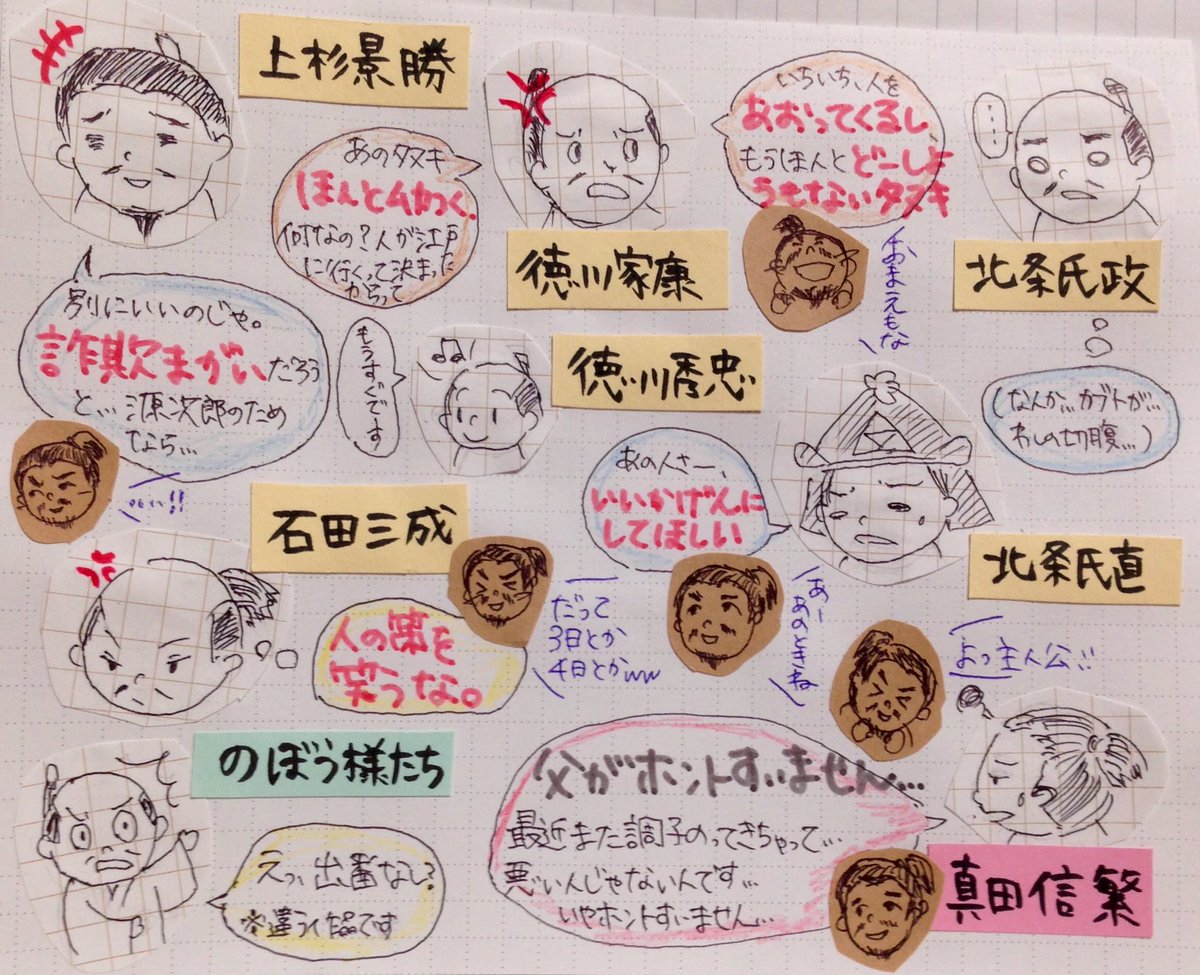 上杉景勝
別にいいのじゃ。
詐欺まがいだろう
と…源次郎のため
なら…
徳川家康
あのタヌキ
ほんとムカつく、
何なの?人が江戸
に行くって決まった
からって
北条氏政
いちいち、人を
あおってくるし、
もうほんとどーしよ
うもないタヌキ
おまえもな
(なんか…カブトが…
わしの切腹…)
徳川秀忠
もうすぐです
北条氏直
あの人さー、
いいかげんに
してほしい
あー
あのときね
石田三成
人の策を
笑うな。
だって
3日とか
4日とかww
よっ主人公!!
のぼう様たち
えっ、出番なし?
※違う作品です
真田信繁
父がホントすいません…
最近また調子のってきちゃって…
悪い人じゃないんです…
いやホントすいません…